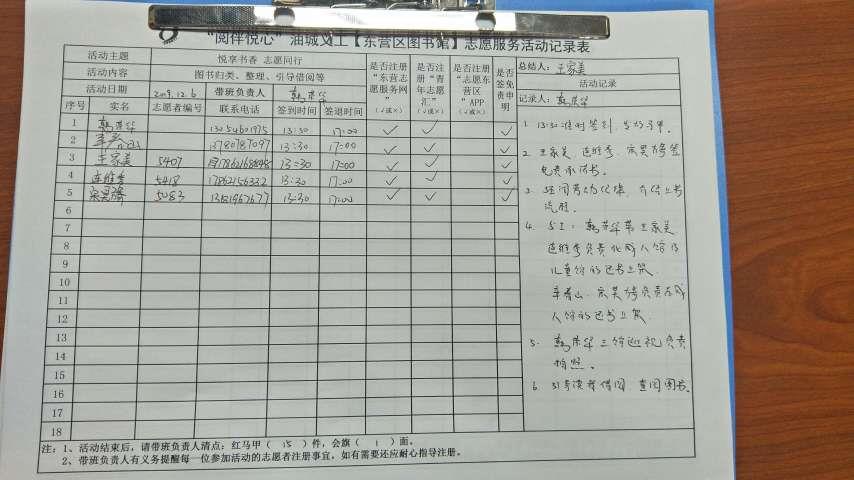 "阅伴悦心"油城义工【东营区图书馆】志愿服务活动记录表
活动主题 悦享书香 志愿同行 是否注册"东营志愿服务网"(√或×) 是否注册"青年志愿汇"(√或×) 是否注册"志愿东营区"APP(√或×) 是否签免责申明 总结人：王家美
活动内容 图书归类、整理、引导借阅等 活动记录
活动日期 2019.12.6 带班负责人 韩荣华 记录人：韩荣华
序号 实名 志愿者编号 联系电话 签到时间 签退时间
1 韩荣华 13054601975 13:30 17:00 √ √ √
2 13780787097 13:30 17:00 √ √ √
3 王家美 5407 13:30 17:00 √ √ √
4 连维秀 5418 17862156332 13:30 17:00 √ √ √
5 5083 13:30 17:00 √ √ √
6
7
8
9
10
11
12
13
14
15
16
17
18
1. 13:30准时签到，
2. 王家美、连维秀、签
免责承诺书。
3. 介绍上书
流程。
4. 分工：韩荣华带王家美
连维秀负责成人馆及
儿童馆的还书上架
负责成
人馆的还书上架
5. 韩荣华三馆巡视负责
拍照。
6. 引导读者借阅、查阅图书。
注：1、活动结束后，请带班负责人清点：红马甲（ 15 ）件，会旗（ 1 ）面。
2、带班负责人有义务提醒每一位参加活动的志愿者注册事宜，如有需要还应耐心指导注册。